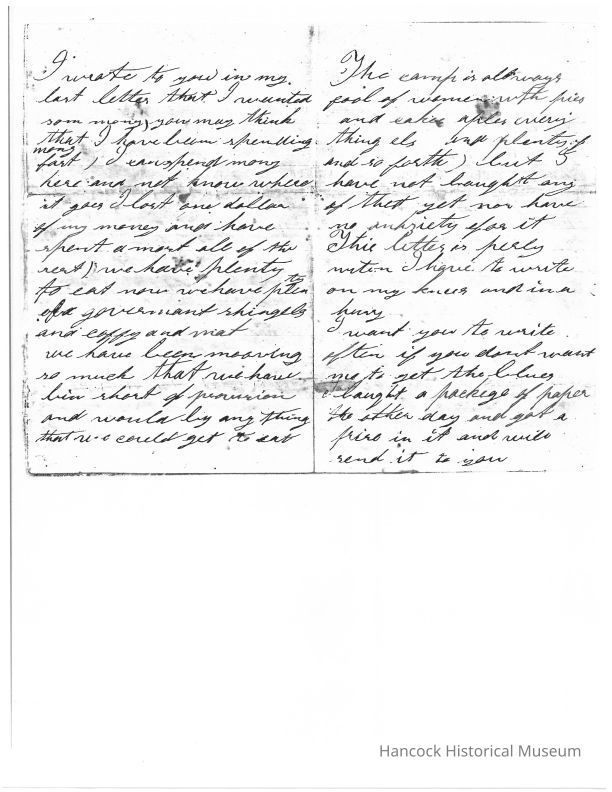 I wrote to you in my
last letter that I wanted
som mony you may think
that I have been spending
mony
fast) I can spend mony
here and not know where
it goes I lost one dollar
of my money and have
spent a most all of the
rest) we have plenty
to eat now we have plen
ty
of govermant shingels
and coffy and mat
we have been mooving
so much that we have
bin short of provision
and would by any thing
that we could get to eat
The camp is allways
fool of women with pies
and cakes aples every
thing els and plenty of
and so forth) but I
have not baught any
of that yet nor have
no anxiety for it
This letter is
writen I have to write
on my knees and in a
hury
I want you to write
often if you dont want
me to get the blues
I baught a packege of paper
the other day and got a
prize in it and will
send it to you
Hancock Historical Museum